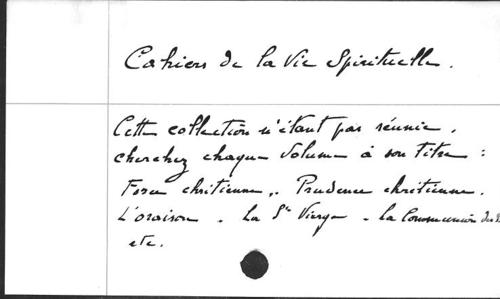 Cahiers de la Vie Spirituelle.
Cette collection n'étant pas réunie,
cherchez chaque volume à son titre :
Force chrétienne,. Prudence chrétienne.
L'oraison. La Ste Vierge. La Communion des
etc.